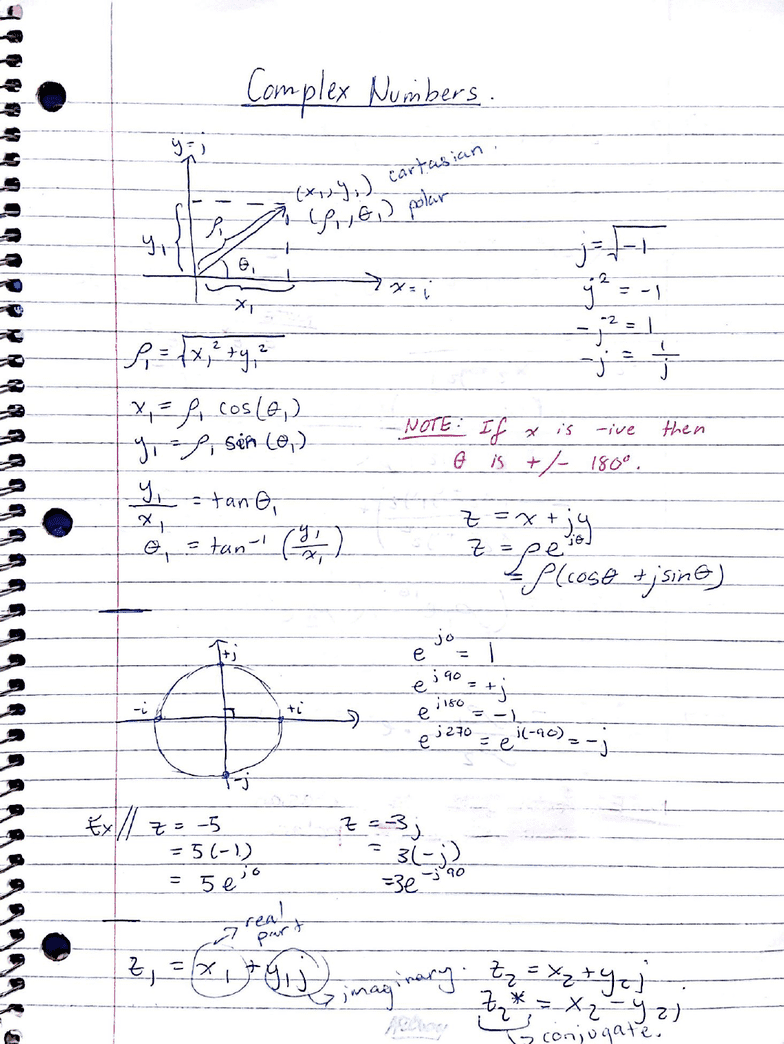 Complex Numbers.
y=j
(x₁, y₁) cartasian.
(ρ₁, θ₁) polar
y₁
ρ₁
θ₁
x₁
x=i
j = √-1
j² = -1
-j⁻² = 1
-j = 1/j
ρ₁ = √x₁² + y₁²
x₁ = ρ₁ cos(θ₁)
y₁ = ρ₁ sin(θ₁)
NOTE: If x is -ive then
θ is +/- 180°.
y₁/x₁ = tan θ₁
θ₁ = tan⁻¹ (y₁/x₁)
z = x + jy
z = ρe^jθ
= ρ(cosθ + jsinθ)
+j
-i
+i
-j
e^j0 = 1
e^j90 = +j
e^j180 = -1
e^j270 = e^j(-90) = -j
Ex // z = -5
= 5(-1)
= 5e^j0
z = -3j
= 3(-j)
=3e^-j90
real
part
z₁ = x₁ + y₁j
imaginary.
z₂ = x₂ + y₂j
z₂* = x₂ - y₂j
conjugate.